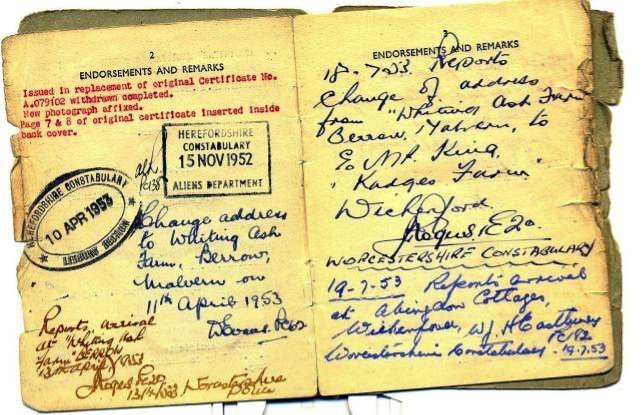 2
ENDORSEMENTS AND REMARKS
Issued in replacement of original Certificate No.
A.079102 withdrawn completed.
New photograph affixed.
Page 7 & 8 of original certificate inserted inside
back cover.
HEREFORDSHIRE
CONSTABULARY
15 NOV 1952
ALIENS DEPARTMENT
HEREFORDSHIRE CONSTABULARY
10 APR 1953
Change address
to Whiting Ash
Farm, Berrow,
Malvern on
11th April 1953
Reports arrival
at "Whiting Ash
Farm" BERROW
3
ENDORSEMENTS AND REMARKS
18-7-53. Reports
Change of address
from "Whiting Ash Farm
Berrow, Malvern, to
Mr. King,
"Kadges Farm"
Wichenford.
WORCESTERSHIRE CONSTABULARY
19-7-53 Reports arrival
at Abingdon Cottages,
Wichenford,
Worcestershire Constabulary. 19.7.53